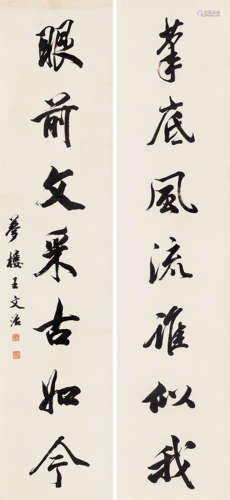 筆底風流誰似我
眼前文采古如今
夢樓王文治